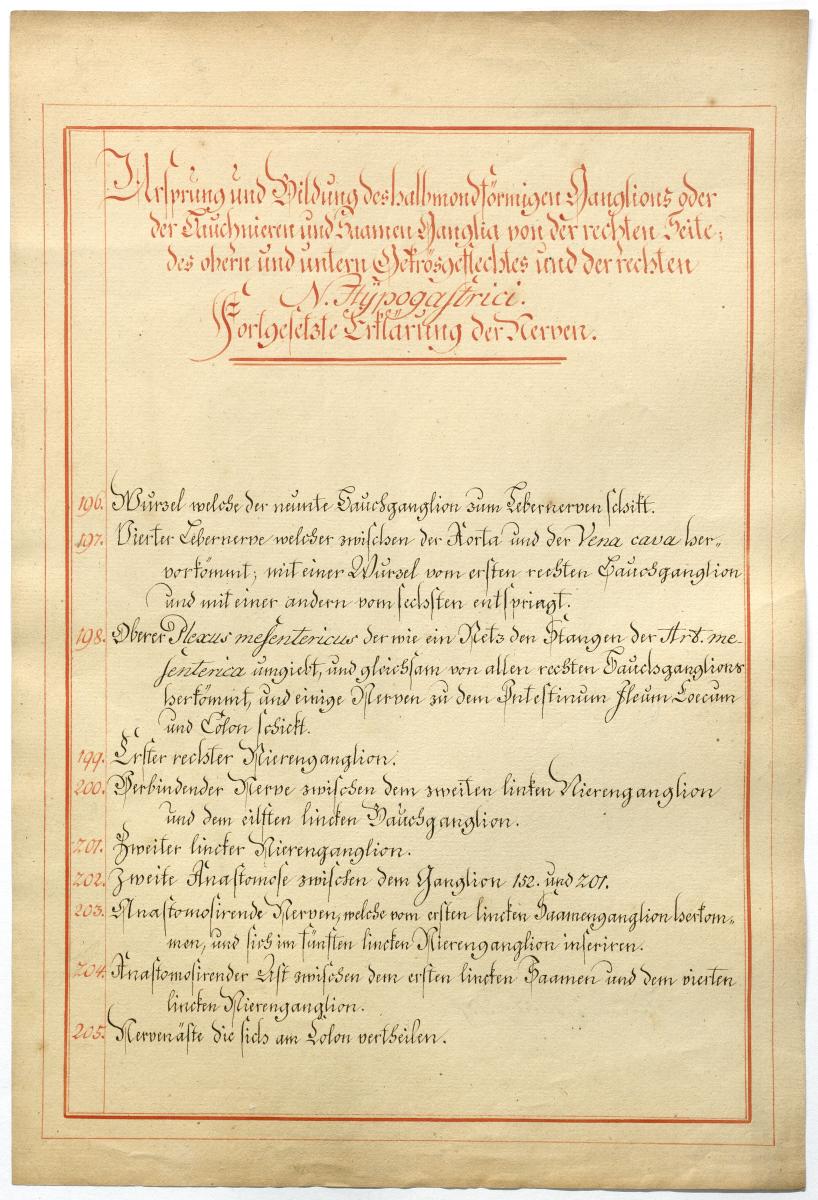 Ursprung und Bildung des halbmondförmigen Ganglions oder
der Bauchnieren und Saamen Ganglia von der rechten Seite;
des obern und untern Gekrösgeflechtes und der rechten
N. Hÿpogastrici.
Fortgesetzte Erklärung der Nerven.
196. Wurzel welche der neunte Bauchganglion zum Lebernerven schikt.
197. Vierter Lebernerve welcher zwischen der Aorta und der Vena cava her„
vorkömmt; mit einer Wurzel vom ersten rechten Bauchganglion
und mit einer andern vom sechsten entspringt.
198. Oberer Plexus mesentericus der wie ein Netz den Stangen der Art. me-
senterica umgiebt, und gleichsam von allen rechten Bauchganglions
herkömmt, und einige Nerven zu dem Intestinum Ileum Coecum
und Colon schickt.
199. Erster rechter Nierenganglion.
200. Verbindender Nerve zwischen dem zweiten linken Nierenganglion
und dem eilften lincken Bauchganglion.
201. Zweiter lincker Nierenganglion.
202. Zweite Anastomose zwischen dem Ganglion 152. und 201.
203. Anastomosirende Nerven, welche vom ersten lincken Saamenganglion herkom„
men, und sich im fünften lincken Nierenganglion inseriren.
204. Anastomosirender Ast zwischen dem ersten lincken Saamen und dem vierten
lincken Nierenganglion.
205. Nervenäste die sich am Colon vertheilen.